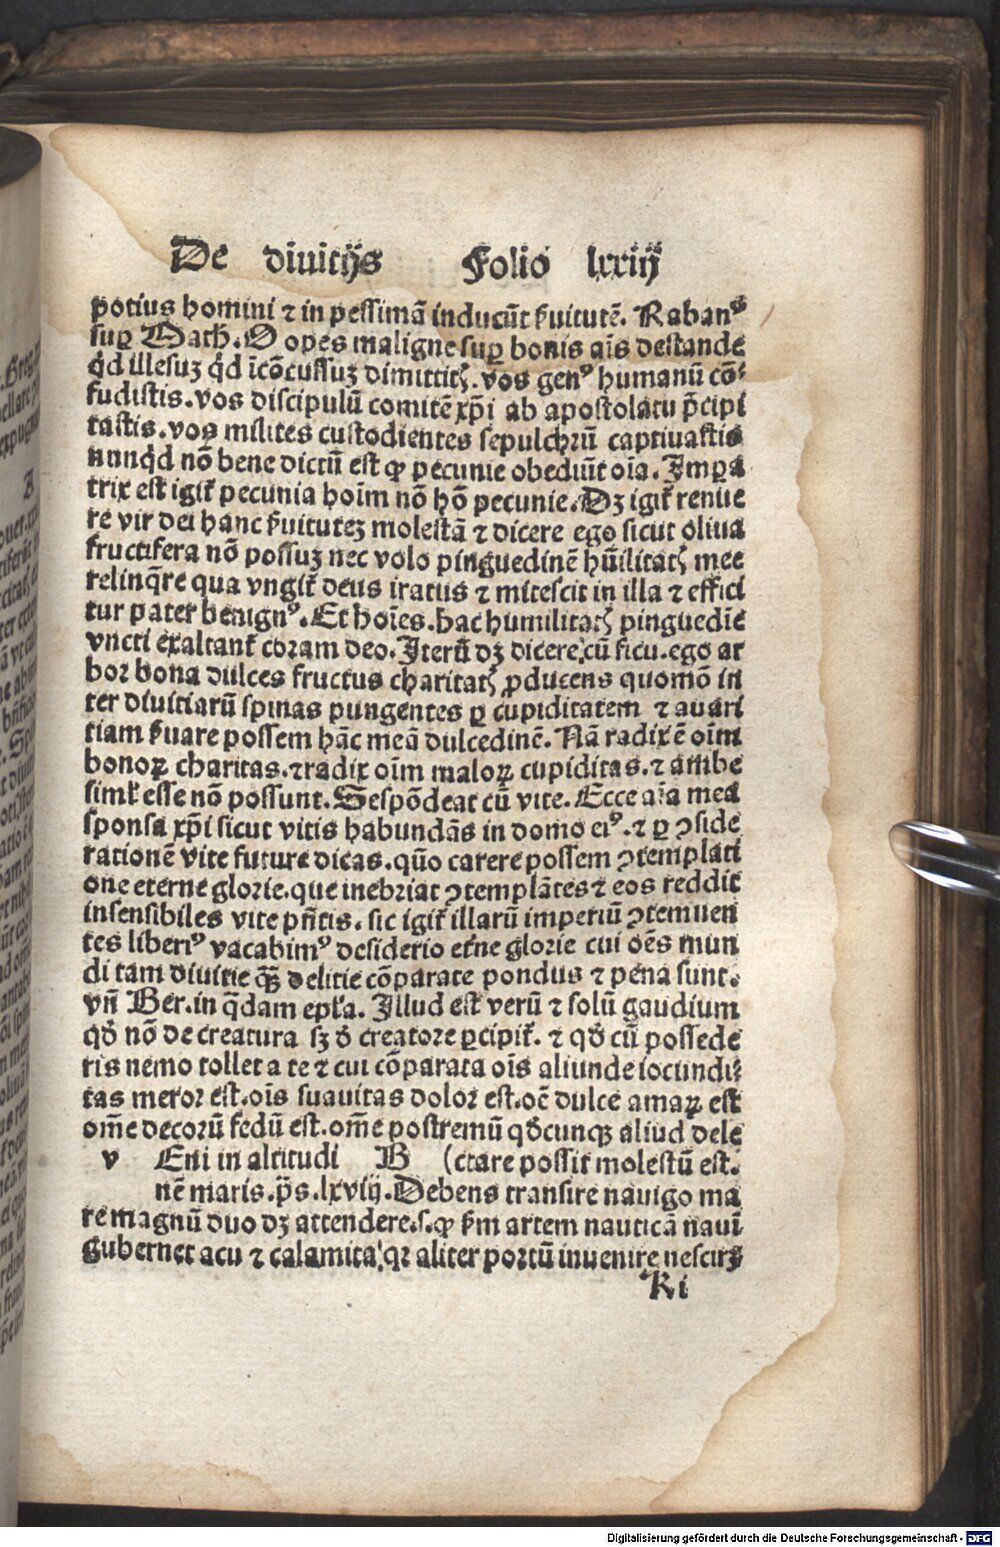 De diuitijs Folio lxxiij
potius homini ⁊ in pessimā inducūt ẜuitutē. Rabanꝰ
suꝑ Math. O opes maligne suꝑ bonis aīs destande
qd́ illesuꝫ qd́ īcōcussuꝫ dimittitꝭ. vos genꝰ humanū cō⸗
fudistis. vos discipulū comitē xp̄i ab apostolatu p̄cipi
tastis. vos milites custodientes sepulchrū captiuastis
nunqd́ nō bene dictū est ꝙ pecunie obediūt oīa. Impera
trix est igit̉ pecunia hoīm nō hō pecunie. Dꝫ igit̉ renue
re vir dei hanc ẜuituteꝫ molestā ⁊ dicere ego sicut oliua
fructifera nō possuꝫ nec volo pinguedinē hūilitatꝭ mee
relinq̄re qua vngit̉ deus iratus ⁊ mitescit in illa ⁊ effici
tur pater benignꝰ. Et hoīes. hac humilitatꝭ pinguedīe
vncti exaltant̉ coram deo. Iterū dꝫ dicere, cū ficu. ego ar
bor bona dulces fructus charitatꝭ ꝓducens quomō in
ter diuitiarū spinas pungentes ꝑ cupiditatem ⁊ auari
tiam ẜuare possem hāc meā dulcedinē. Nā radix ē oīm
bonoꝝ charitas. ⁊ radix oīm maloꝝ cupiditas. ⁊ ambe
siml̉ esse nō possunt. Sespōdeat cū vite. Ecce aīa mea
sponsa xp̄i sicut vitis habundās in domo eiꝰ. ⁊ ꝑ ꝯside
rationē vite future dicas. quō carere possem ꝯtemplati
one eterne glorie. que inebriat ꝯtemplātes ⁊ eos reddit
insensibiles vite pn̄tis. sic igit̉ illarū imperiū ꝯtemnen
tes liberiꝰ vacabimꝰ desiderio et̉ne glorie cui oēs mun
di tam diuitie qꝫ̄ delitie cōparate pondus ⁊ pena sunt.
vn̄ Ber. in q̄dam epl̉a. Illud est verū ⁊ solū gaudium
qd̉ nō de creatura sꝫ d̉ creatore ꝑcipit̉. ⁊ qd̉ cū possede
ris nemo tollet a te ⁊ cui cōparata oīs aliunde iocundi⸗
tas meror est. oīs suauitas dolor est. oē dulce amaꝝ est
om̄e decorū fedū est. om̄e postremū qd̉cunqꝫ aliud dele
v Eni in altitudi B (ctare possit molestū est.
nē maris. p̄s. lxviij. Debens transire nauigo ma
re magnū duo dꝫ attendere. s. ꝙ ẜm artem nauticā nauī
gubernet acu ⁊ calamita, qꝛ aliter portū inuenire nesciꝫ
K i
Digitalisierung gefördert durch die Deutsche Forschungsgemeinschaft - DFG